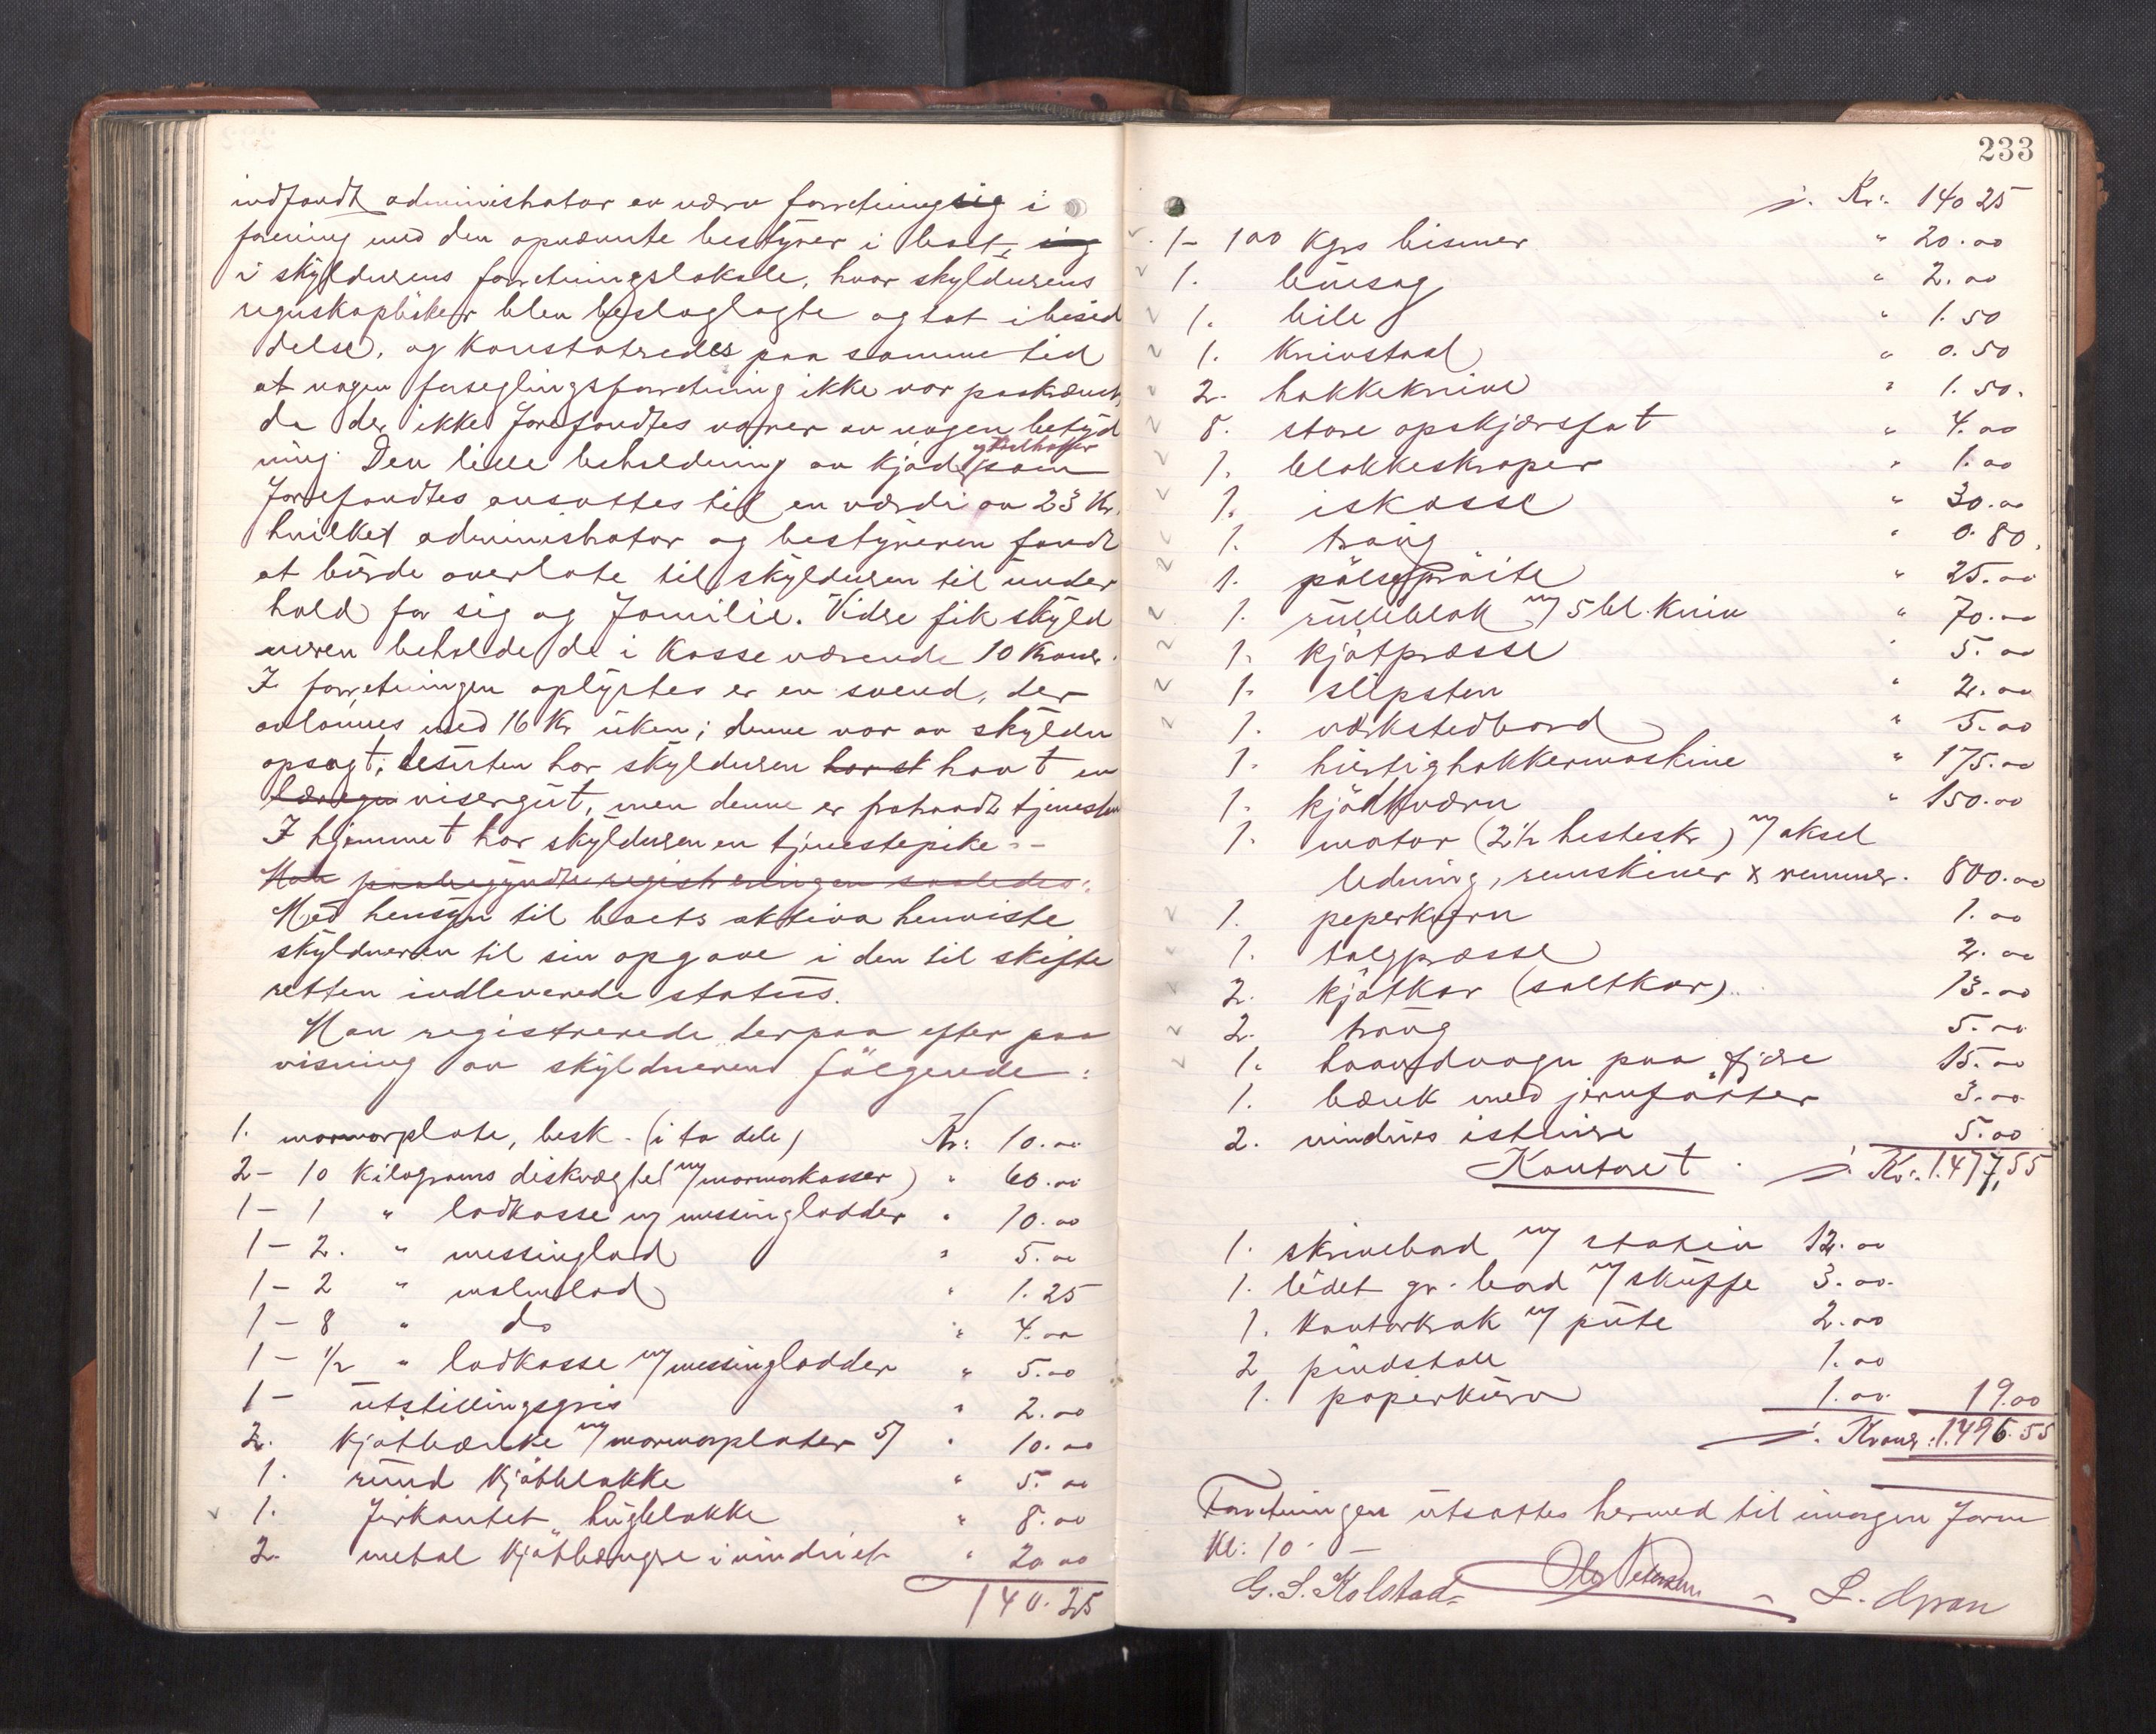 indfandt administrator av nærv forretning sig i
forening med den opnævnte bestyrer i boet, sig
i skyldnerens forretningslokale, hvor skyldnerens
regnskapsbøker blev beslaglagte og tat i besid
delse, og konstateredes paa samme tid
at nogen forseglingsforretning ikke var paakrævet,
da der ikke forefandtes varer av nogen betyd
ning. Den lille beholdning av kjød og som
forefandtes ansattes til en værdi av 23 Kr.
hvilket administrator og bestyreren fandt
at burde overlate til skyldneren til under
hold for sig og familie. Vidre fik skyld
neren beholde de i kasse værende 10 Kroner.
I forretningen oplystes er en svend, der
avlønnes med 16 Kr uken; denne var av skyldn
opsagt; desuten har skyldneren havt en
visergut, men denne er fratraadt tjenesten
I hjemmet har skyldneren en tjenestepike. -
Man paabegyndte registreringen saaledes:
Med hensyn til boets aktiva henviste
skyldneren til sin opgave i den til skifte
retten indleverede status.
Man registrerede derpaa efter paa
visning av skyldneren følgende:
1. marmorplate, besk. (i to dele) Kr: 10.00
2 - 10 Kilograms diskvegter m/ marmorkasser) " 60.00
1 - 1 " lodkasse m/ messinglodder " 10.00
1 - 2. " messinglod " 5.00
1 - 2 " malmlod " 1.25
1 - 8 " do " 4.00
1 - 1/2 " lodkasse m/ messinglodder " 5.00
1 - utstillingsgris " 2.00
2. kjøtbænke m/ marmorplater 5/ " 10.00
1. rund kjøtblokke " 5.00
1. firkantet hugblokke " 8.00
2. metal kjøthængre i vinduet " 20 00
140.25
233
Kr: 140 25
1 - 100 Kgrs bismer " 20.00
1. buesag " 2.00
1. bile " 1.50
1. knivstaal " 0.50
2. hakkeknive " 1.50.
8. store opskjærsfat " 4.00
1. blokkeskraper " 1.00
1. iskasse " 30.00
1. traug " 0.80.
1. pølsesprøite " 25.00
1. rulleblok m/ 5 bl. kniv " 70.00
1. kjøtpresse " 5.00
1. slipsten " 2.00
1. verkstedbord " 5.00
1. hurtighakkermaskine " 175.00
1. kjødkværn " 150.00
1. motor (2 1/2 hestekr) m/ aksel
ledning, remskiver & remmer. 800.00
1. peperkværn 1.00
1. talgpresse 2.00
2. kjøtkar (saltkar). 13.00
2. traug 5.00
1. haandvogn paa fjære 15.00
1. bænk med jernføtter 3.00
2. vindues 5.00
Kontoret. Kr: 1.477,55
1. skrivebord m/ stativ 12.00
1. lidet gr. bord m/ skuffe 3.00.
1. kontorkrak m/ pute 2.00
2 pindstole 1.00
1. papirkurv 1.00 19.00
Kroner: 1.496.55
Forretningen utsattes hermed til imorgen form
Kl: 10. -
G. S. Kolstad. Ole Petersen L. Gran